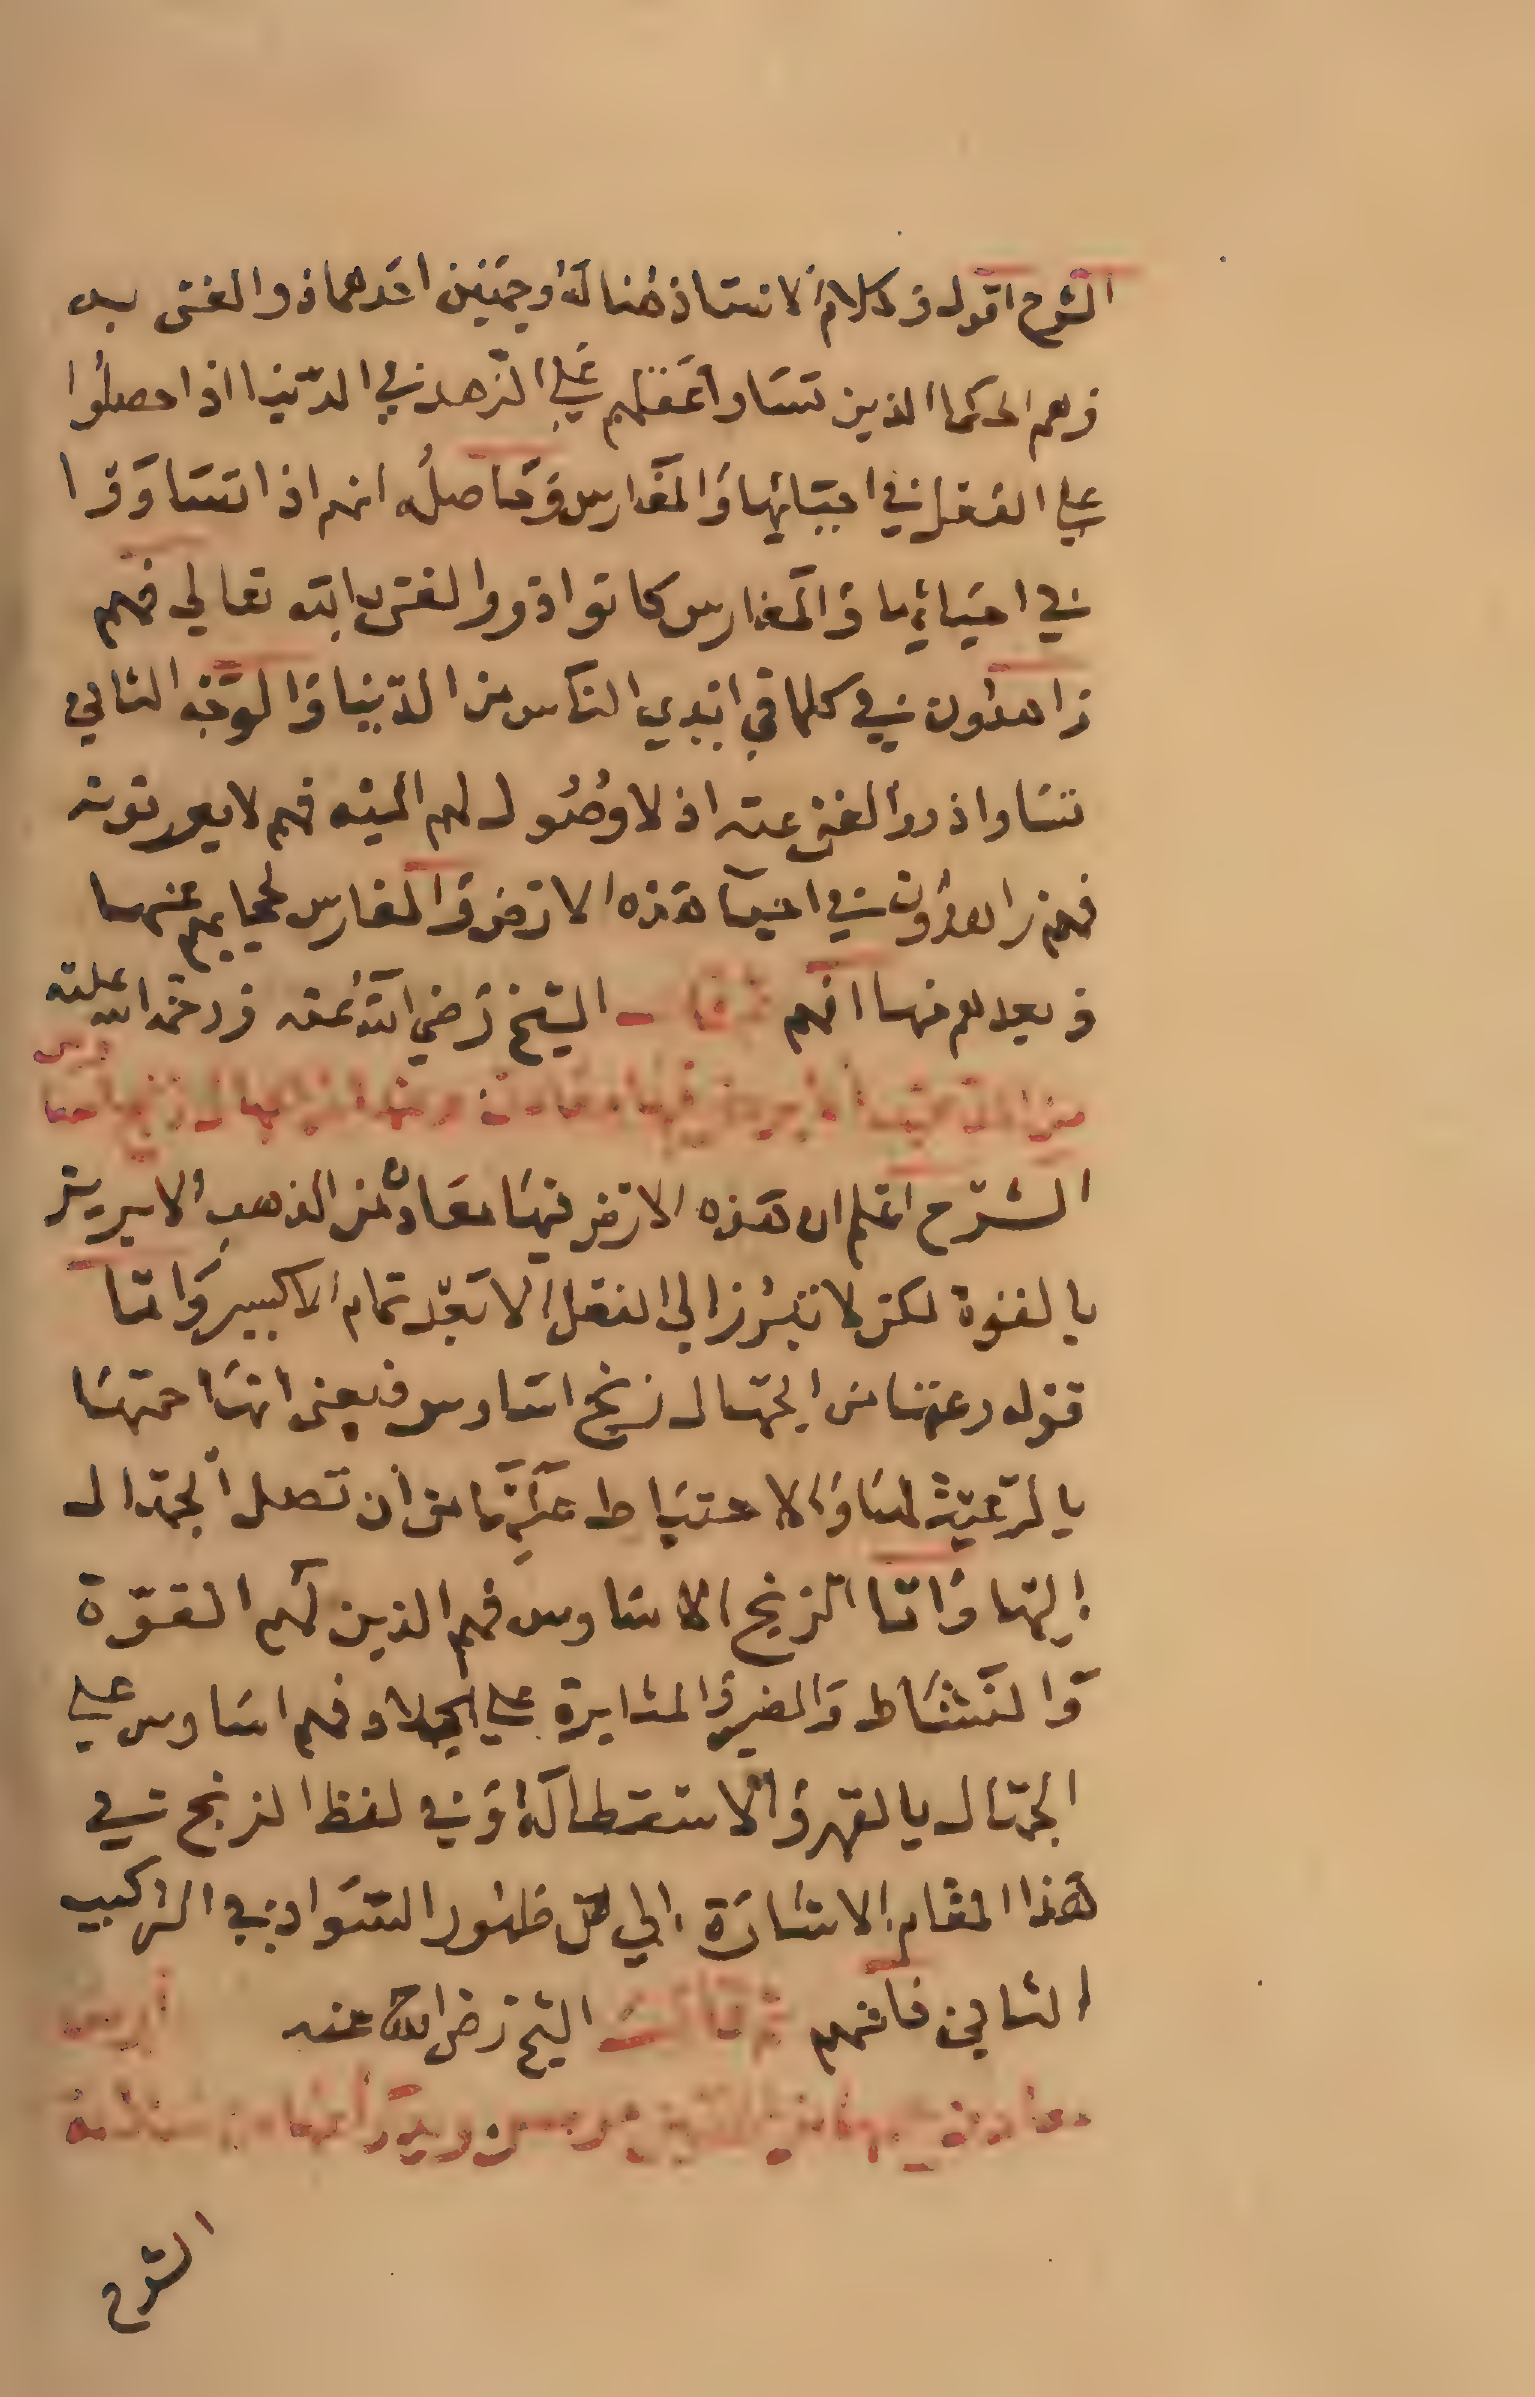 الشرح اقول وكلام الاستاذ هنا له وجهين احدهما ذو الغنى به
وهم الحكما الذين تساوا عقلهم على الزهد في الدنيا اذا حصلوا
على العقل في احيائها والمغارس وحاصله انهم اذا تساووا
في احيائها والمغارس كانوا ذووا الغنى بالله تعالى فهم
زاهدون في كلما في ايدي الناس من الدنيا والوجه الثاني
تساوا ذووا الغنى عنه اذ لا وصول لهم اليه فهم لا يعرفونه
فهم زاهدون في احيا هذه الارض والمغارس لحجابهم عنها
وبعدهم منها افهم ثم قال الشيخ رضي الله عنه ورحمة الله عليه
الشرح اعلم ان هذه الارض فيها معادن من الذهب الابريز
بالقوة لكن لا تبرز الى الفعل الا بعد تمام الاكسير واما
قوله رعتها من الجهال زنج اساوس فيعني انها حمتها
بالرعية لها والاحتياط عليها من ان تصل الجهال
اليها واما الزنج الاساوس فهم الذين لهم القوة
والنشاط والصبر والمثابرة على الجلاد فهم اساوس على
الجهال بالقهر والاستطالة وفي لفظ الزنج في
هذا المقام الاشارة الى ظهور السواد في التركيب
الثاني فافهم ثم قال الشيخ رضي الله عنه
الشرح